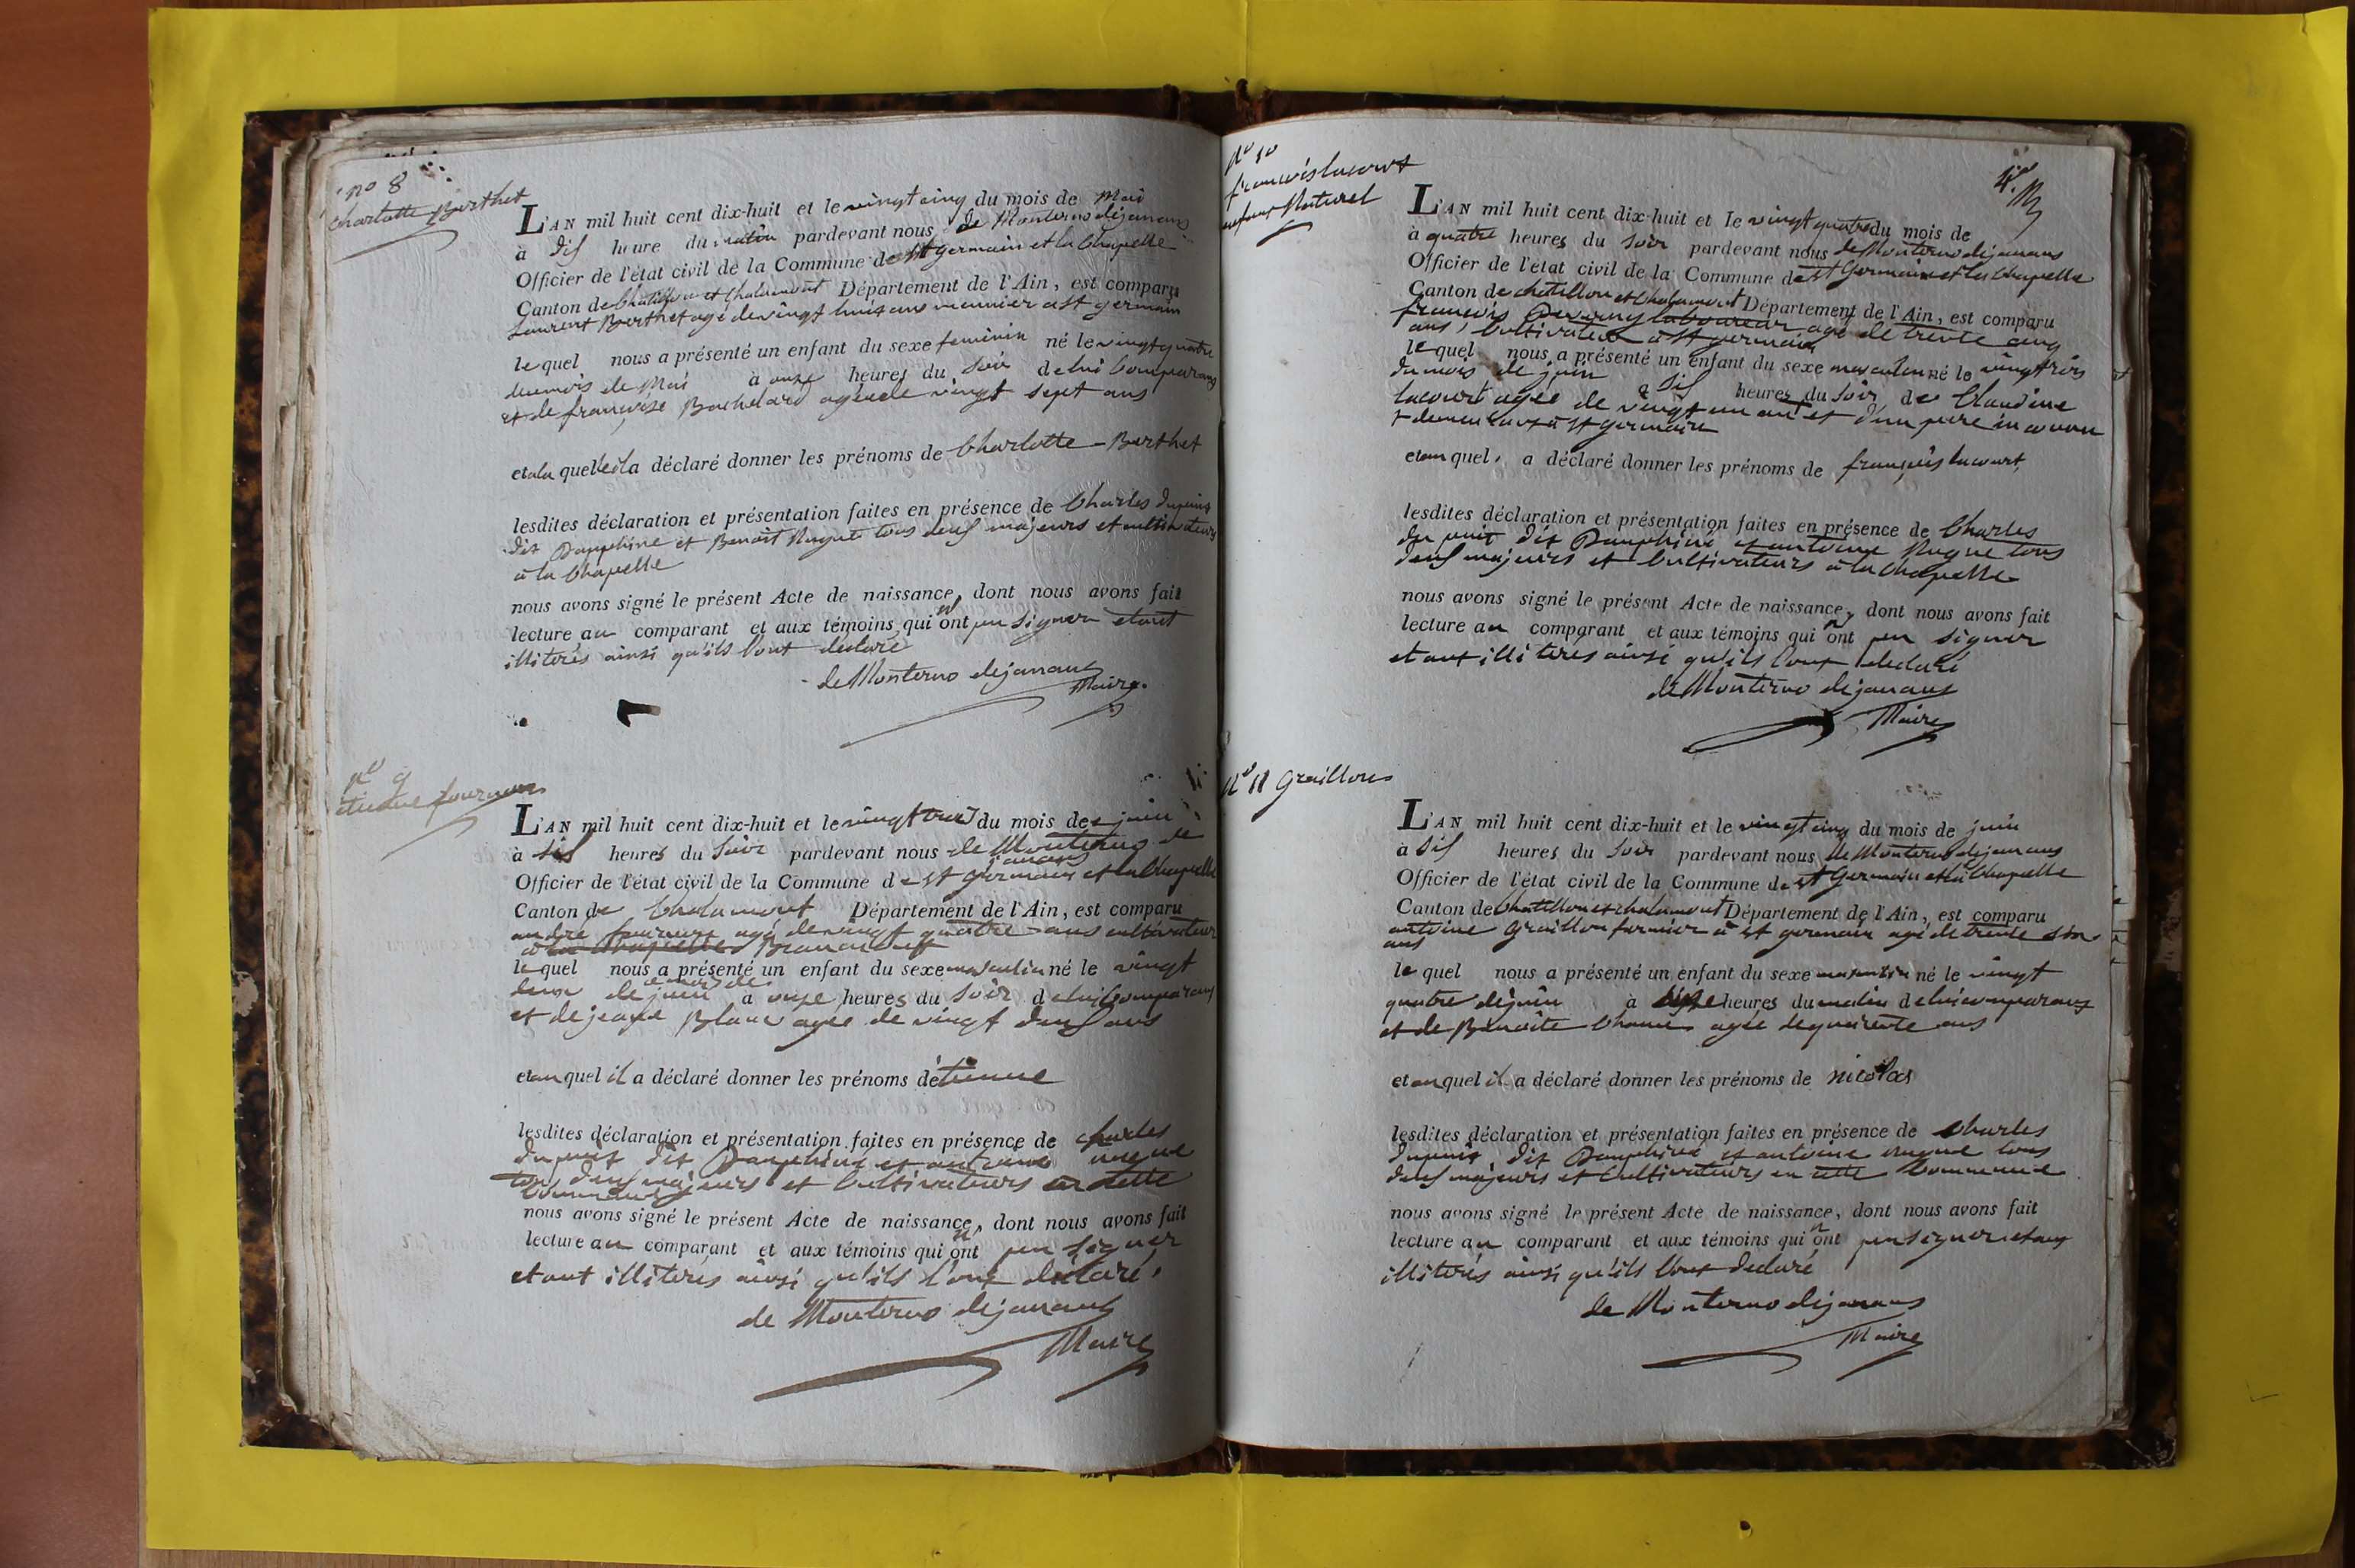 no 8
Charlotte Berthet
L'AN mil huit cent dix-huit et le vingt cinq du mois de Mai
à dis heure du matin pardevant nous de Monterno dejanans
Officier de l'état civil de la Commune de st germain et la Chapelle
Canton de Chatillon et Chalamont Département de l'Ain, est comparu
Laurent Berthet agé de vingt huit ans meunier a st germain
lequel nous a présenté un enfant du sexe feminin né le vingt quatre
du mois de Mai à onze heures du soir de lui Comparans
et de françoise Bachelard agée de vingt sept ans
et a la quelle il a déclaré donner les prénoms de Charlotte - Berthet
lesdites déclaration et présentation faites en présence de Charles dupuit
dit Dauphiné et Benoit Nugue tous deus majeurs et cultivateurs
à la Chapelle
nous avons signé le présent Acte de naissance, dont nous avons fait
lecture au comparant et aux témoins qui n'ont pu signer etant
illiterés ainsi qu'ils l'ont déclaré
de Monterno dejanans
Maire
no 9
etienne fournier
L'AN mil huit cent dix-huit et le vingt trois du mois de juin
à sis heures du soir pardevant nous de Monterno de
janans
Officier de l'état civil de la Commune de st germain et la Chapelle
Canton de Chalamont Département de l'Ain, est comparu
andré agé de vingt quatre ans cultivateur
à la Chapelle
lequel nous a présenté un enfant du sexe masculin né le vingt
deux de juin à onze heures du soir de lui Comparans
et de jeane Blanc agée de vingt deus ans
et au quel il a déclaré donner les prénoms détienne
lesdites déclaration et présentation faites en présence de charles
dupuit dit Dauphiné et antoine nugue
tous deus majeurs et Cultivateurs en cette
Commune
nous avons signé le présent Acte de naissance, dont nous avons fait
lecture au comparant et aux témoins qui n'ont pu signer
etant illiterés ainsi qu'ils l'ont déclaré,
de Monterno dejanans
Maire
no 10
françois lacourt
enfant Naturel
L'AN mil huit cent dix-huit et le vingt quatre du mois de
à quatre heures du soir pardevant nous de Monterno dejanans
Officier de l'état civil de la Commune de st Germain et la Chapelle
Canton de chatillon et Chalamont Département de l'Ain, est comparu
françois laboureur agé de trente cinq
ans, Cultivateur à st germain
lequel nous a présenté un enfant du sexe masculin né le vingt trois
du mois de juin à sis heures du soir de Claudine
lacourt agée de vingt un ans et d'un pere inconnu
demeurant à st germain
et au quel a déclaré donner les prénoms de françois lacourt
lesdites déclaration et présentation faites en présence de Charles
du puit dit Dauphiné et antoine Nugue tous
deus majeurs et Cultivateurs à la Chapelle
nous avons signé le présent Acte de naissance, dont nous avons fait
lecture au comparant et aux témoins qui n'ont pu signer
etant illiterés ainsi qu'ils l'ont declaré
de Monterno dejanans
Maire
no 11 Graillon
L'AN mil huit cent dix-huit et le vingt cinq du mois de juin
à dis heures du soir pardevant nous de Monterno dejanans
Officier de l'état civil de la Commune de st Germain et la Chapelle
Canton de Chatillon et chalamont Département de l'Ain, est comparu
antoine Graillon fermier à st germain agé de trente six
ans
lequel nous a présenté un enfant du sexe masculin né le vingt
quatre de juin à heures du matin de lui comparans
et de Benoite agée de quarente ans
et au quel il a déclaré donner les prénoms de nicolas
lesdites déclaration et présentation faites en présence de Charles
dupuit dit Dauphiné et antoine nugue tous
deus majeurs et Cultivateurs en cette Commune
nous avons signé le présent Acte de naissance, dont nous avons fait
lecture au comparant et aux témoins qui n'ont pu signer etant
illiterés ainsi qu'ils l'ont declaré
de Monterno dejanans
Maire